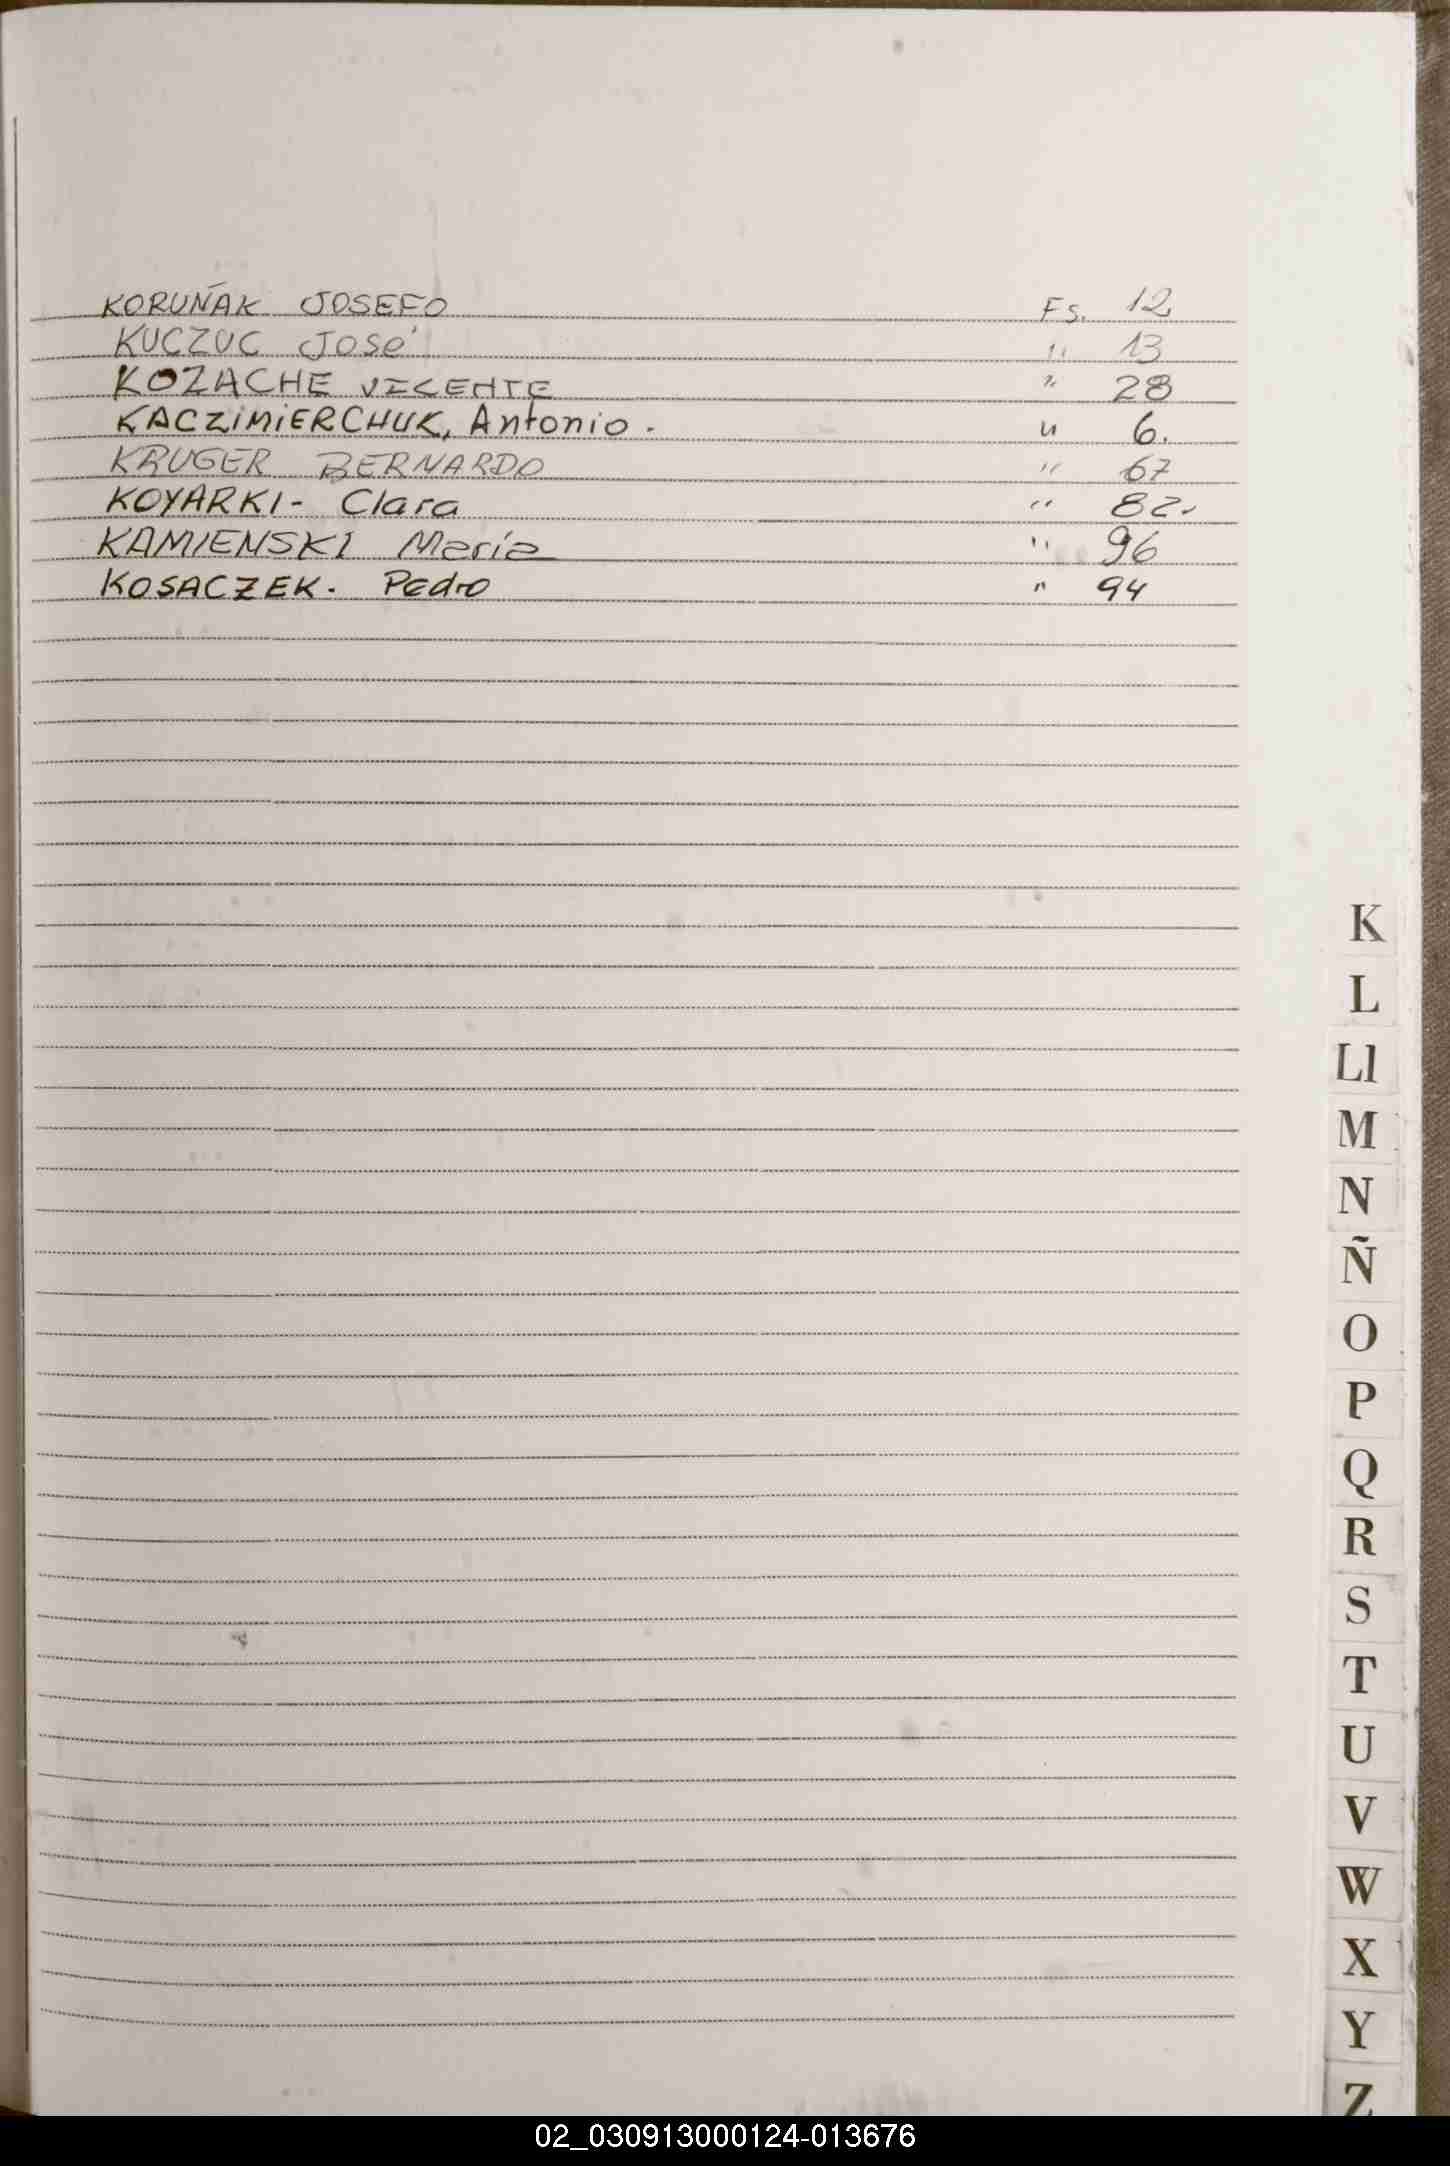 KORUÑAK JOSEFO Fs. 12
KUCZUC José " 13
KOZACHE VICENTE " 28
KACZIMIERCHUK, Antonio. " 6.
KRUGER BERNARDO " 67
KOYARKI- Clara " 82.
KAMIENSKI María " 96
KOSACZEK. Pedro " 94
K
L
Ll
M
N
Ñ
O
P
Q
R
S
T
U
V
W
X
Y
Z
02_030913000124-013676